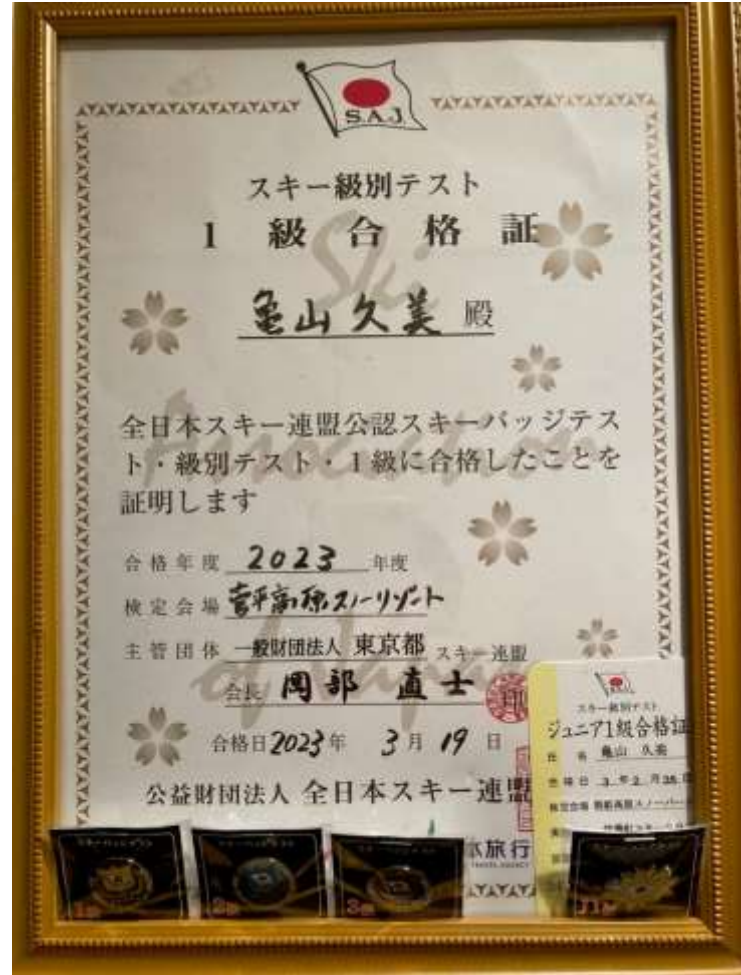 S.A.J.
スキー級別テスト
1 級 合 格 証
亀山久美 殿
全日本スキー連盟公認スキーバッジテス
ト・級別テスト・1級に合格したことを
証明します
合格年度 2023 年度
検定会場 菅平高原スノーリゾート
主管団体 一般財団法人 東京都 スキー連盟
会長 岡部 直士
合格日 2023年 3月 19日
公益財団法人 全日本スキー連盟
本旅行
スキー級別テスト
ジュニア1級合格証
氏 名 亀山 久美
合格日 3 年 2 月
検定会場
1級
2級
3級
J1級